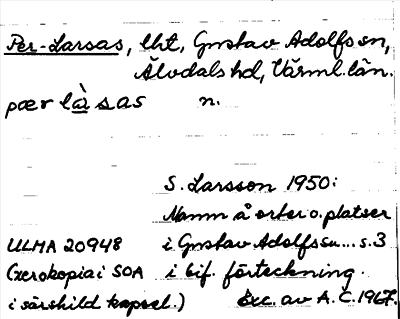 Per-Larsas, lht, Gustav Adolfs sn,
Älvdals hd, Värml. län.
pær làsas n.
S. Larsson 1950:
Namn å orter o. platser
ULMA 20948 i Gustav Adolfs sn... s. 3
(Xerokopia i SOA i bif. förteckning.
i särskild kapsel.) Exc. av A.C. 1967.